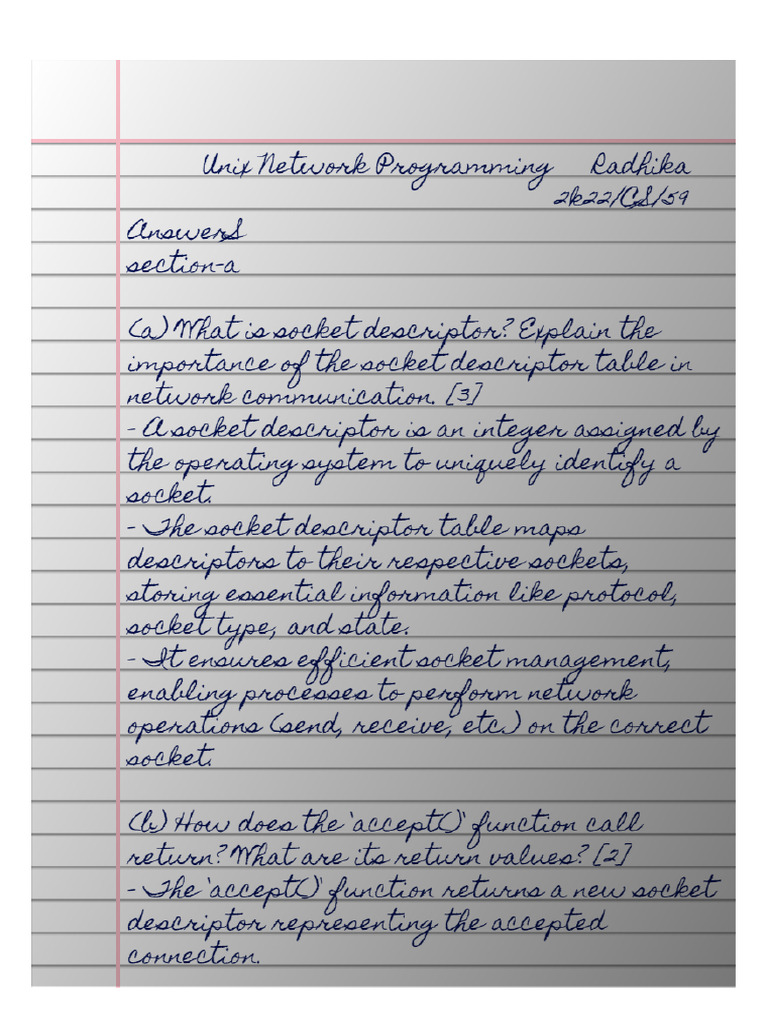 Unix Network Programming Radhika
2k22/CS/59
AnswerS
section-a
(a) What is socket descriptor? Explain the
importance of the socket descriptor table in
network communication. [3]
- A socket descriptor is an integer assigned by
the operating system to uniquely identify a
socket.
- The socket descriptor table maps
descriptors to their respective sockets,
storing essential information like protocol,
socket type, and state.
- It ensures efficient socket management,
enabling processes to perform network
operations (send, receive, etc.) on the correct
socket.
(b) How does the 'accept()' function call
return? What are its return values? [2]
- The 'accept()' function returns a new socket
descriptor representing the accepted
connection.